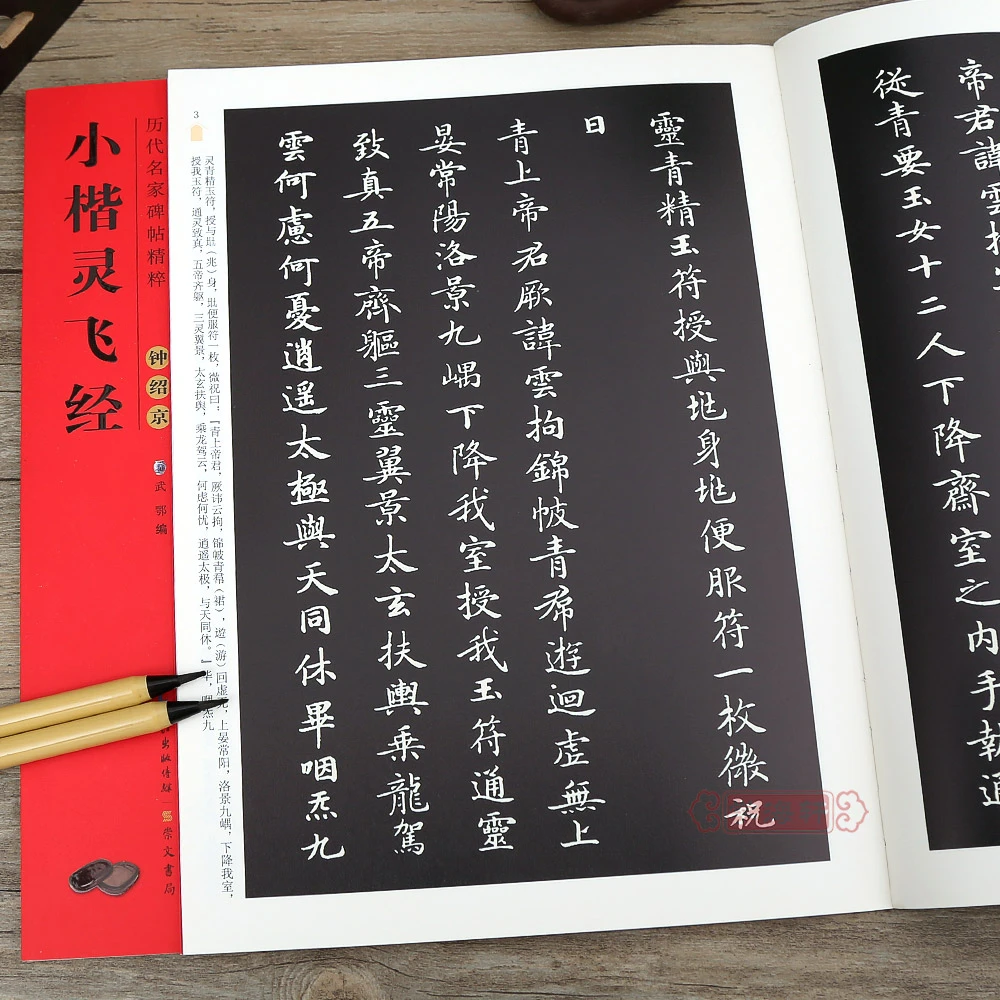 帝君諱雲拘
從青要玉女十二人下降齋室之内手執通
靈青精玉符授與垗身垗便服符一枚微祝
曰
青上帝君厥諱雲拘錦帔青帬遊迴虛無上
晏常陽洛景九嵎下降我室授我玉符通靈
致真五帝齊軀三靈翼景太玄扶輿乘龍駕
雲何慮何憂逍遙太極與天同休畢咽炁九
3
灵青精玉符，授与垗（兆）身，垗便服符一枚，微祝曰：『青上帝君，厥讳云拘，锦帔青帬（裙），遊（游）回虚无，上晏常阳，洛景九嵎，下降我室，
授我玉符，通灵致真，五帝齐躯，三灵翼景，太玄扶舆，乘龙驾云，何虑何忧，逍遥太极，与天同休。』毕，咽炁九
历代名家碑帖精粹
钟绍京
武鄂 编
崇文书局
小楷灵飞经